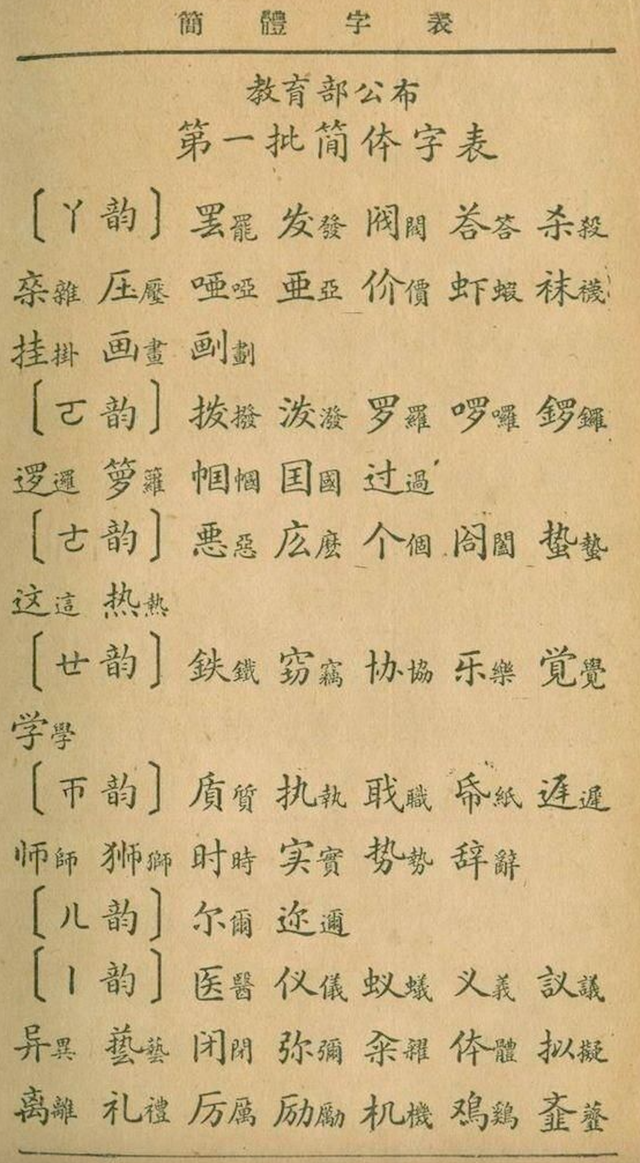 簡體字表
教育部公布
第一批简体字表
〔ㄚ韵〕 罢罷 发發 阀閥 荅答 杀殺
杂雜 压壓 哑啞 亜亞 价價 虾蝦 袜襪
挂掛 画畫 劃
〔ㄛ韵〕 拨撥 泼潑 罗羅 啰囉 鑼
逻邏 箩籮 帼幗 囯國 过過
〔ㄜ韵〕 悪惡 庅麼 个個 阁閤 蛰蟄
这這 热熱
〔ㄝ韵〕 鉄鐵 窃竊 协協 乐樂 覚覺
学學
〔ㄭ韵〕 质質 执執 職 帋紙 遅遲
师師 狮獅 时時 实實 势勢 辞辭
〔ㄦ韵〕 尔爾 迩邇
〔ㄧ韵〕 医醫 仪儀 蚁蟻 义義 議
异異 藝 闭閉 弥彌 籴糴 体體 拟擬
离離 礼禮 厉厲 励勵 机機 鸡鷄 齑虀